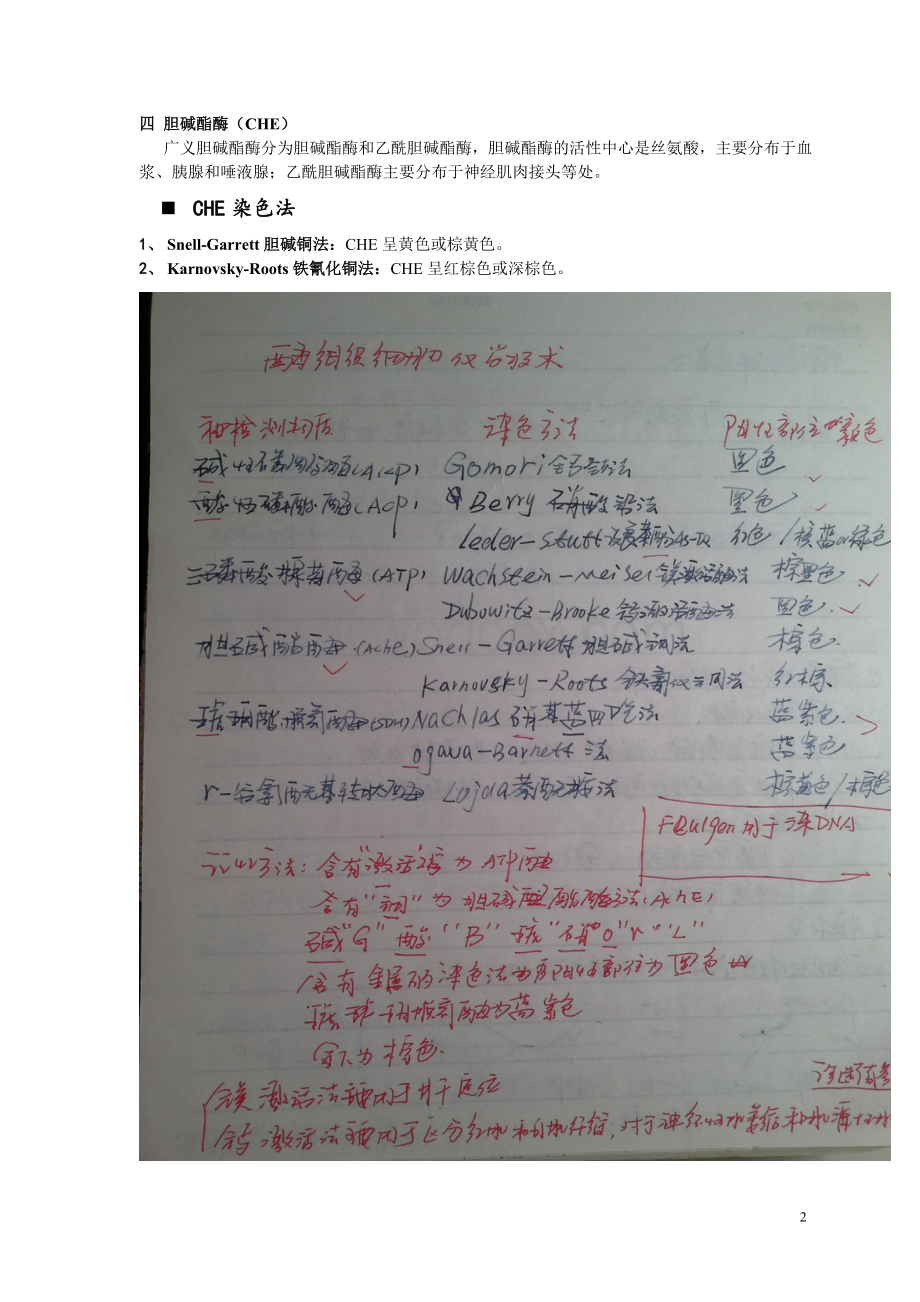 四 胆碱酯酶（CHE）
广义胆碱酯酶分为胆碱酯酶和乙酰胆碱酯酶，胆碱酯酶的活性中心是丝氨酸，主要分布于血
浆、胰腺和唾液腺；乙酰胆碱酯酶主要分布于神经肌肉接头等处。
■ CHE 染色法
1、 Snell-Garrett 胆碱铜法：CHE 呈黄色或棕黄色。
2、 Karnovsky-Roots 铁氰化铜法：CHE 呈红棕色或深棕色。
组织细胞化学技术
被检测物质 染色方法 阳性部位颜色
碱性磷酸酶(AKP) Gomori钙钴法 黑色
酸性磷酸酶(ACP) Berry硝酸铅法 黑色
Leder-Stutt 萘酚AS- 红色/核蓝or绿色
三磷酸腺苷酶(ATP) Wachstein-Meisel镁激活酶法 棕黑色
Dubowitz-Brooke钙激活酶法 黑色
胆碱酯酶(AchE) Snell-Garrett胆碱铜法 棕色
Karnovsky-Roots 铁氰化铜法 红棕
琥珀酸脱氢酶(SDH) Nachlas 硝基蓝四唑法 蓝紫色
Ogawa-Barnett 法 蓝紫色
r-谷氨酰基转肽酶 Lojda萘酚 法 棕黄色/棕色
Feulgen用于染DNA
记忆方法：含有"激活"为ATP酶
含有"铜"为胆碱酯酶方法(AchE)
碱"G" 酸"B" 琥"硝o" r"L"
含有金属的染色法 阳性部位为黑色
琥珀酸脱氢酶为蓝紫色
余下为棕色.
镁激活法主要用于 定位
钙激活法主要用于区分红肌和白肌纤维，对于神经性肌萎缩和肌
诊断
2